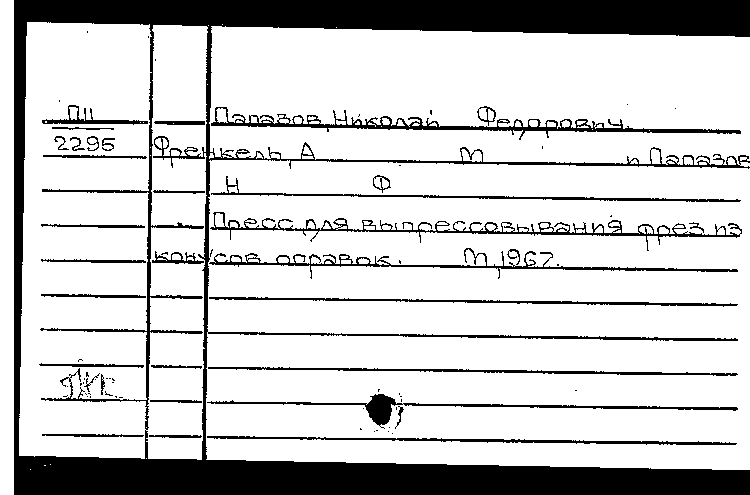 ПII Папазов, Николай Федорович.
2295 Френкель, А М и Папазов
Н Ф
Пресс для выпрессовывания фрез из
конусов оправок. М, 1967.